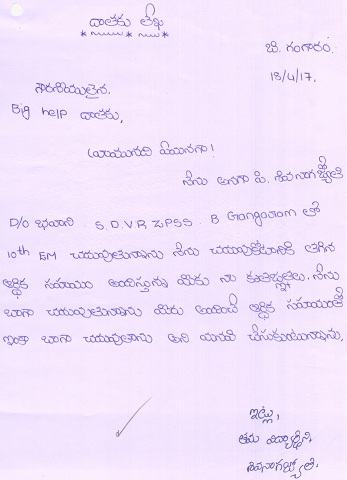 దాతకు లేఖ
బి. గంగారం.
18/4/17.
గౌరవనీయులైన,
Big help దాతకు,
వ్రాయునది ఏమనగా!
నేను అనగా పి. శివనాగజ్యోతి
D/o భవాని. S.D.V.R. ZPSS. B Gangavaram లో
10th EM చదువుతున్నాను నేను చదువుకోటానికి తగిన
ఆర్థిక సహాయం అందిస్తున్న మీకు నా కృతజ్ఞతలు. నేను
బాగా చదువుతున్నాను మీరు అందించే ఆర్థిక సహాయంతో
ఇంకా బాగా చదువుతాను అని మనవి చేసుకుంటున్నాను.
ఇట్లు,
తమ విద్యార్థిని,
శివనాగజ్యోతి.